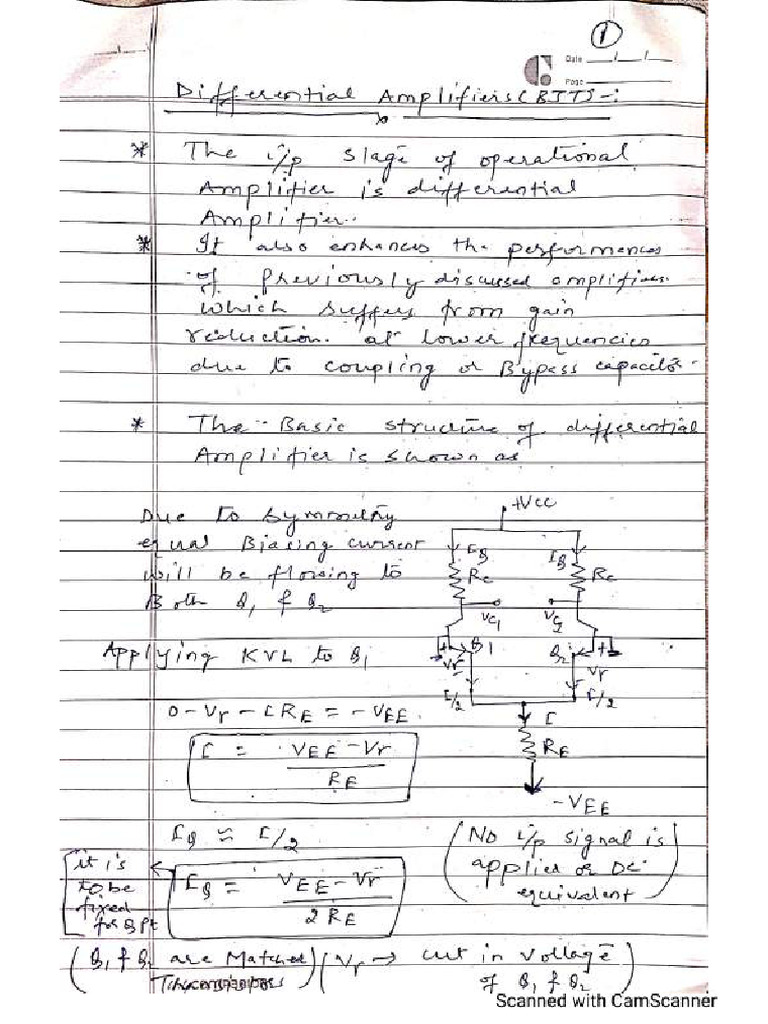 1
Date / /
Page
Differential Amplifiers (BJT) -:
* The i/p stage of operational
Amplifier is differential
Amplifier.
* It also enhances the performances
of previously discussed amplifiers
which suffers from gain
reduction at lower frequencies
due to coupling or Bypass capacitor.
* The Basic structure of differential
Amplifier is shown as
+Vcc
Due to symmetry
equal Biasing current
will be flowing to
Both Q1 & Q2
IQ IQ
Rc Rc
Vc1 Vc2
Applying KVL to Q1
+ Q1 Q2 +
Vr Vr
I/2 I/2
0 - Vr - IRE = -VEE
I
I = VEE - Vr / RE
RE
-VEE
IQ ≈ I/2
(No i/p signal is
applied or DC
equivalent)
it is
to be
fixed
for Q Pt
IQ = VEE - Vr / 2RE
(Q1 & Q2 are Matched
Transistors)
(Vr → cut in voltage
of Q1 & Q2)
Scanned with CamScanner